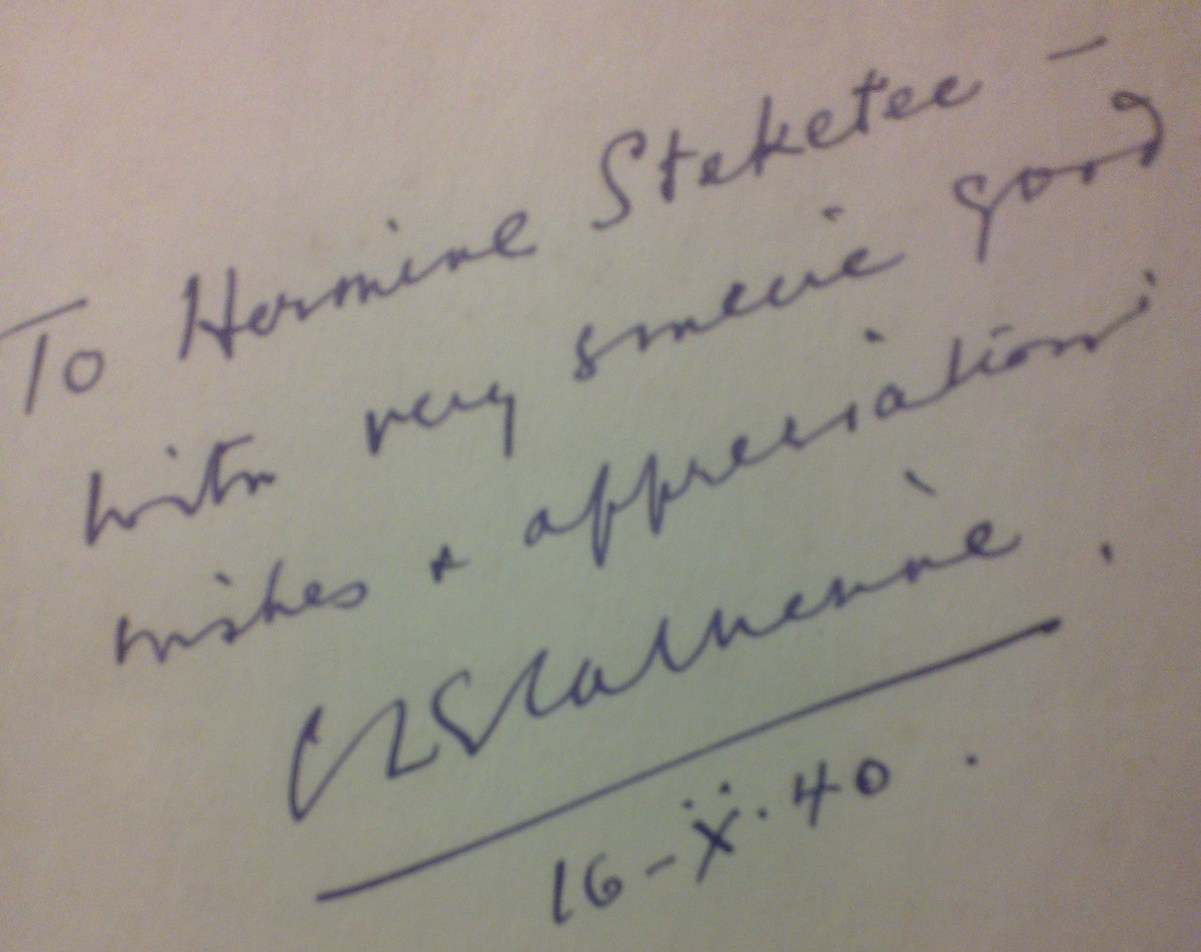 To Hermine Steketee —
with very sincere good
wishes + appreciation
16-Ẍ.40.